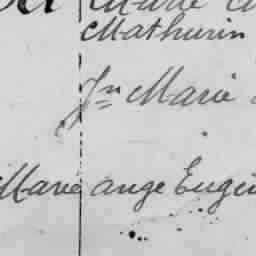 Marie
Mathurin
Jn Marie
Marie ange Eugé